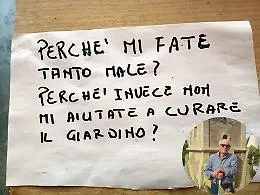 PERCHE' MI FATE
TANTO MALE?
PERCHE' INVECE NON
MI AIUTATE A CURARE
IL GIARDINO?